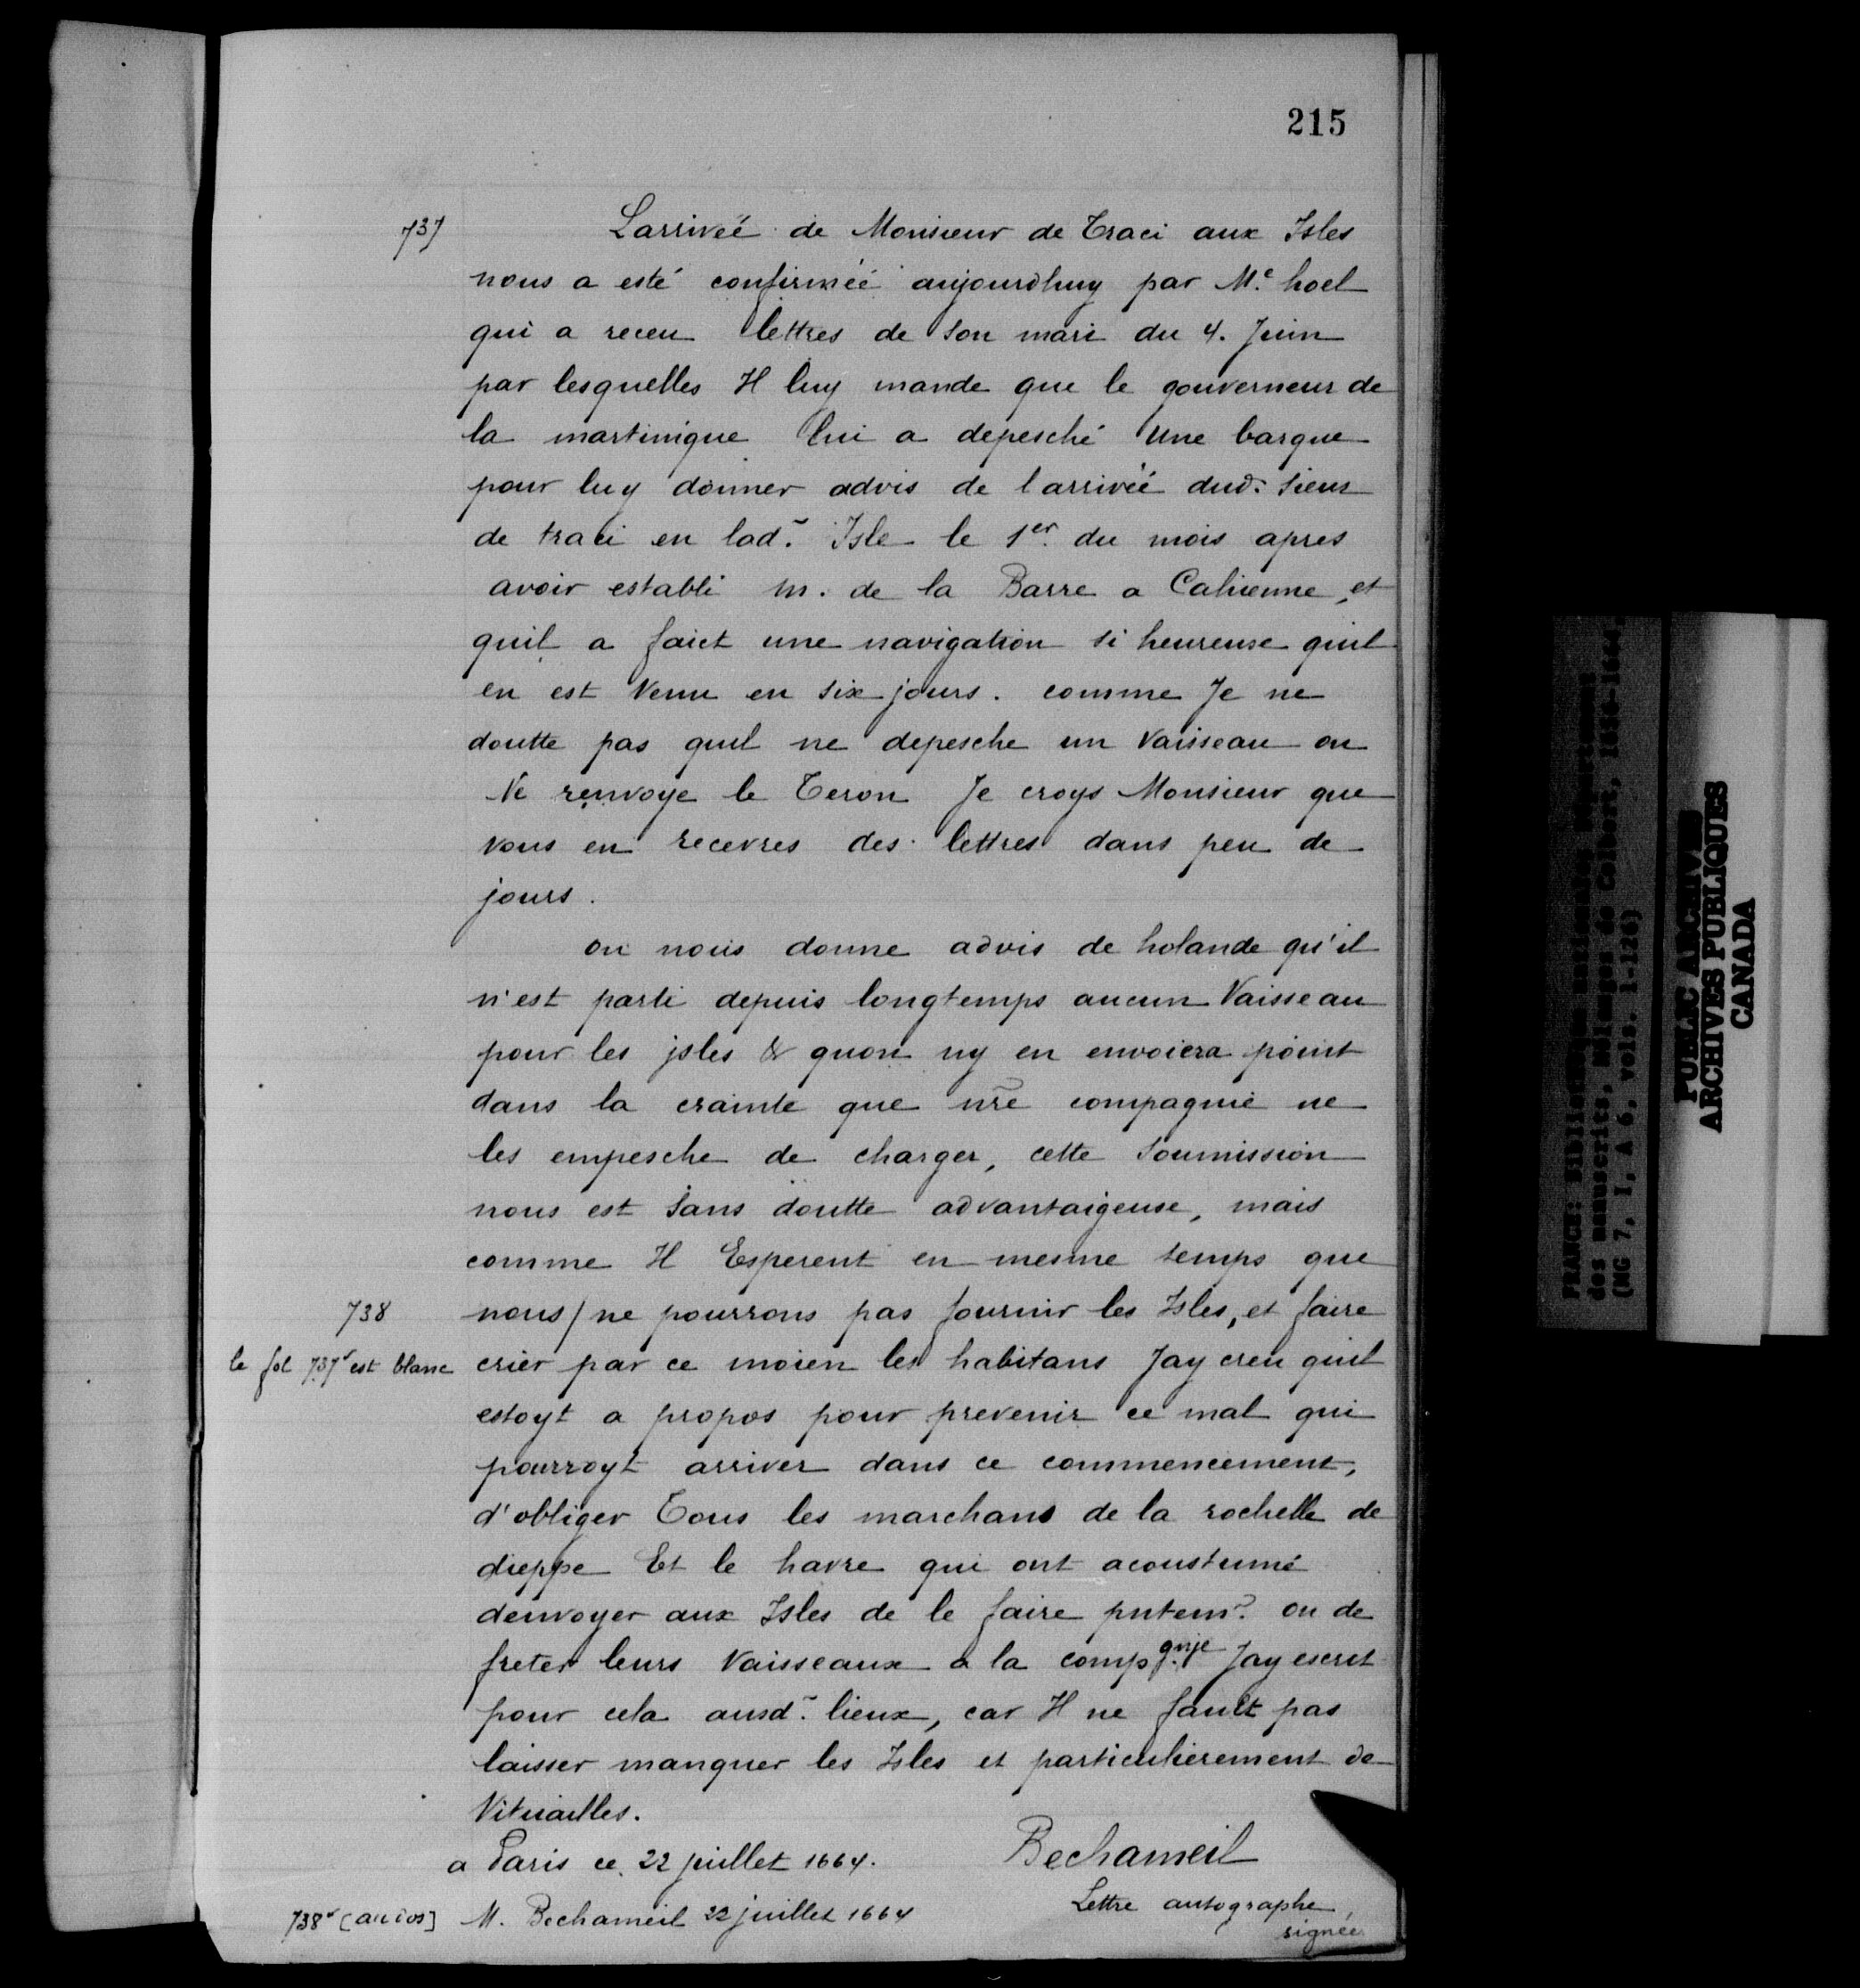 215
737
Larriveé de Monsieur de Traci aux Isles
nous a esté confirméé aujourdhuy par Me. hoel
qui a receu lettres de son mari du 4. Juin
par lesquelles Il luy mande que le gouverneur de
la martinique lui a depesché Une barque
pour luy donner advis de larrivéé dud. sieur
de traci en lad. Isle le 1er. du mois apres
avoir establi m. de la Barre a Cahienne, et
quil a faict une navigation si heureuse quil
en est venu en six jours. comme Je ne
doutte pas quil ne depesche un vaisseau ou
Ne renvoye le Teron Je croys Monsieur que
vous en recevres des lettres dans peu de
jours.
on nous donne advis de holande qu'il
n'est parti depuis longtemps aucun Vaisseau
pour les jsles & quon ny en envoiera point
dans la crainte que nr̃e compagnie ne
les empesche de charger, cette soumission
nous est sans doutte advantaigeuse, mais
comme Il Esperent en mesme temps que
738
nous / ne pourrons pas fournir les Isles, et faire
le fol 737v est blanc
crier par ce moien les habitans Jay creu quil
estoyt a propos pour prevenir ce mal qui
pourroyt arriver dans ce commencement,
d'obliger Tous les marchans de la rochelle de
dieppe Et le havre qui ont acoustumé
denvoyer aux Isles de le faire ou de
freter leurs Vaisseaux a la compgnje Jay escrit
pour cela ausd. lieux, car Il ne fault pas
laisser manquer les Isles et particulierement de
Vituailles.
a Paris ce 22 juillet 1664.
Bechameil
Lettre autographe
signée
738v [au dos] M. Bechameil 22 juillet 1664
FRANCE: Bibliothèque nationale, Département
des manuscrits, Mélanges de Colbert,
(MG 7, I, A 6, vols. 1-126)
PUBLIC ARCHIVES
ARCHIVES PUBLIQUES
CANADA